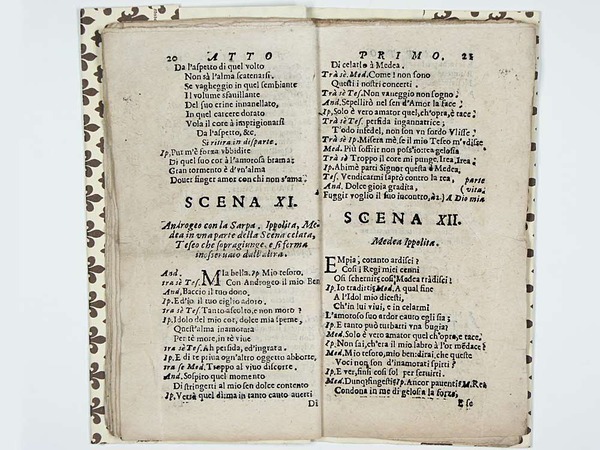 20 ATTO
Da l'aspetto di quel volto
Non sà l'alma scatenarsi.
Se vagheggio in quel sembiante
Il volume sfauillante
Del suo crine innanellato,
In quel carcere dorato
Vola il core à imprigionarsi
Da l'aspetto, &c.
Si ritira in disparte.
Ip. Pur m'è forza vbbidire
Di quel suo cor à l'amorosa brama:
Gran tormento è d'vn'alma
Douer finger amor con chi non s'ama.
SCENA XI.
Androgeo con la Sarpa, Ippolita, Me-
dea in vna parte della Scena celata,
Teseo che sopragiunge, e si ferma
inosseruato dall'altra.
And. Mla bella. Ip. Mio tesoro,
trà sè Tes. Con Androgeo il mio Ben
And. Baccio il tuo dono,
Ip. Ed io il tuo ciglio adoro.
trà sè Tes. Tanto ascolto, e non moro?
Ip. Idolo del mio cor, dolce mia speme,
Quest'alma inamorata
Per tè more, in tè viue
trà sè Tes. Ah perfida, ed ingrata.
Ip. E di te priua ogn'altro oggetto abborre,
tra se Med. Troppo al viuo discorre.
And. Sospiro quel momento
Di stringerti al mio sen dolce contento
Ip. Verrà quel dì, ma in tanto cauto auerti
Di
PRIMO. 21
Di celarlo à Medea.
Trà sè. Med. Come! non sono
Questi i nostri concerti.
Trà sè Tes. Non vaneggio non sogno;
And. Sepellirò nel sen d'Amor la face;
Ip. Solo è vero amator quel, ch'opra, e tace
Trà sè Tes. perfida ingannatrice;
T'odo infedel, non son vn sordo Vlisse.
Trà sè Ip. Misera mè, se il mio Teseo m'vdisse
Med. Più soffrir non poss'io tea gelosia
Trà sè Troppo il core mi punge. Irea, Irea.
Ip. Ahimè parti Signor questa è Medea,
Tes. Vendicarmi saprò contro la rea, parte
And. Dolce gioia gradita, (vita.
Fuggir voglio il suo incontro, à 2.) A Dio mia
SCENA XII.
Medea Ippolita.
EMpia, cotanto ardisci?
Così i Regi miei cenni
Osi schernir; così Medea tradisci?
Ip. Io tradirti; Med. A qual fine
A l'Idol mio dicesti,
Ch'in lui viui, e in celarmi
L'amoroso suo ardor cauto egli sia;
Ip. E tanto può turbarti vna bugia?
Med. Solo è vero amator quel, ch'opra, e tace.
Ip. Non sai, ch'era il mio labro à l'or mẽdace?
Med. Mio tesoro, mio ben dirai, che queste
Voci non d'inamorati spirti?
Ip. E ver, finsi così sol per seruirti.
Med. Dunq; fingesti; Ip. Ancor pauenti? M. Rea
Condona in me di gelosia la forza,
E se